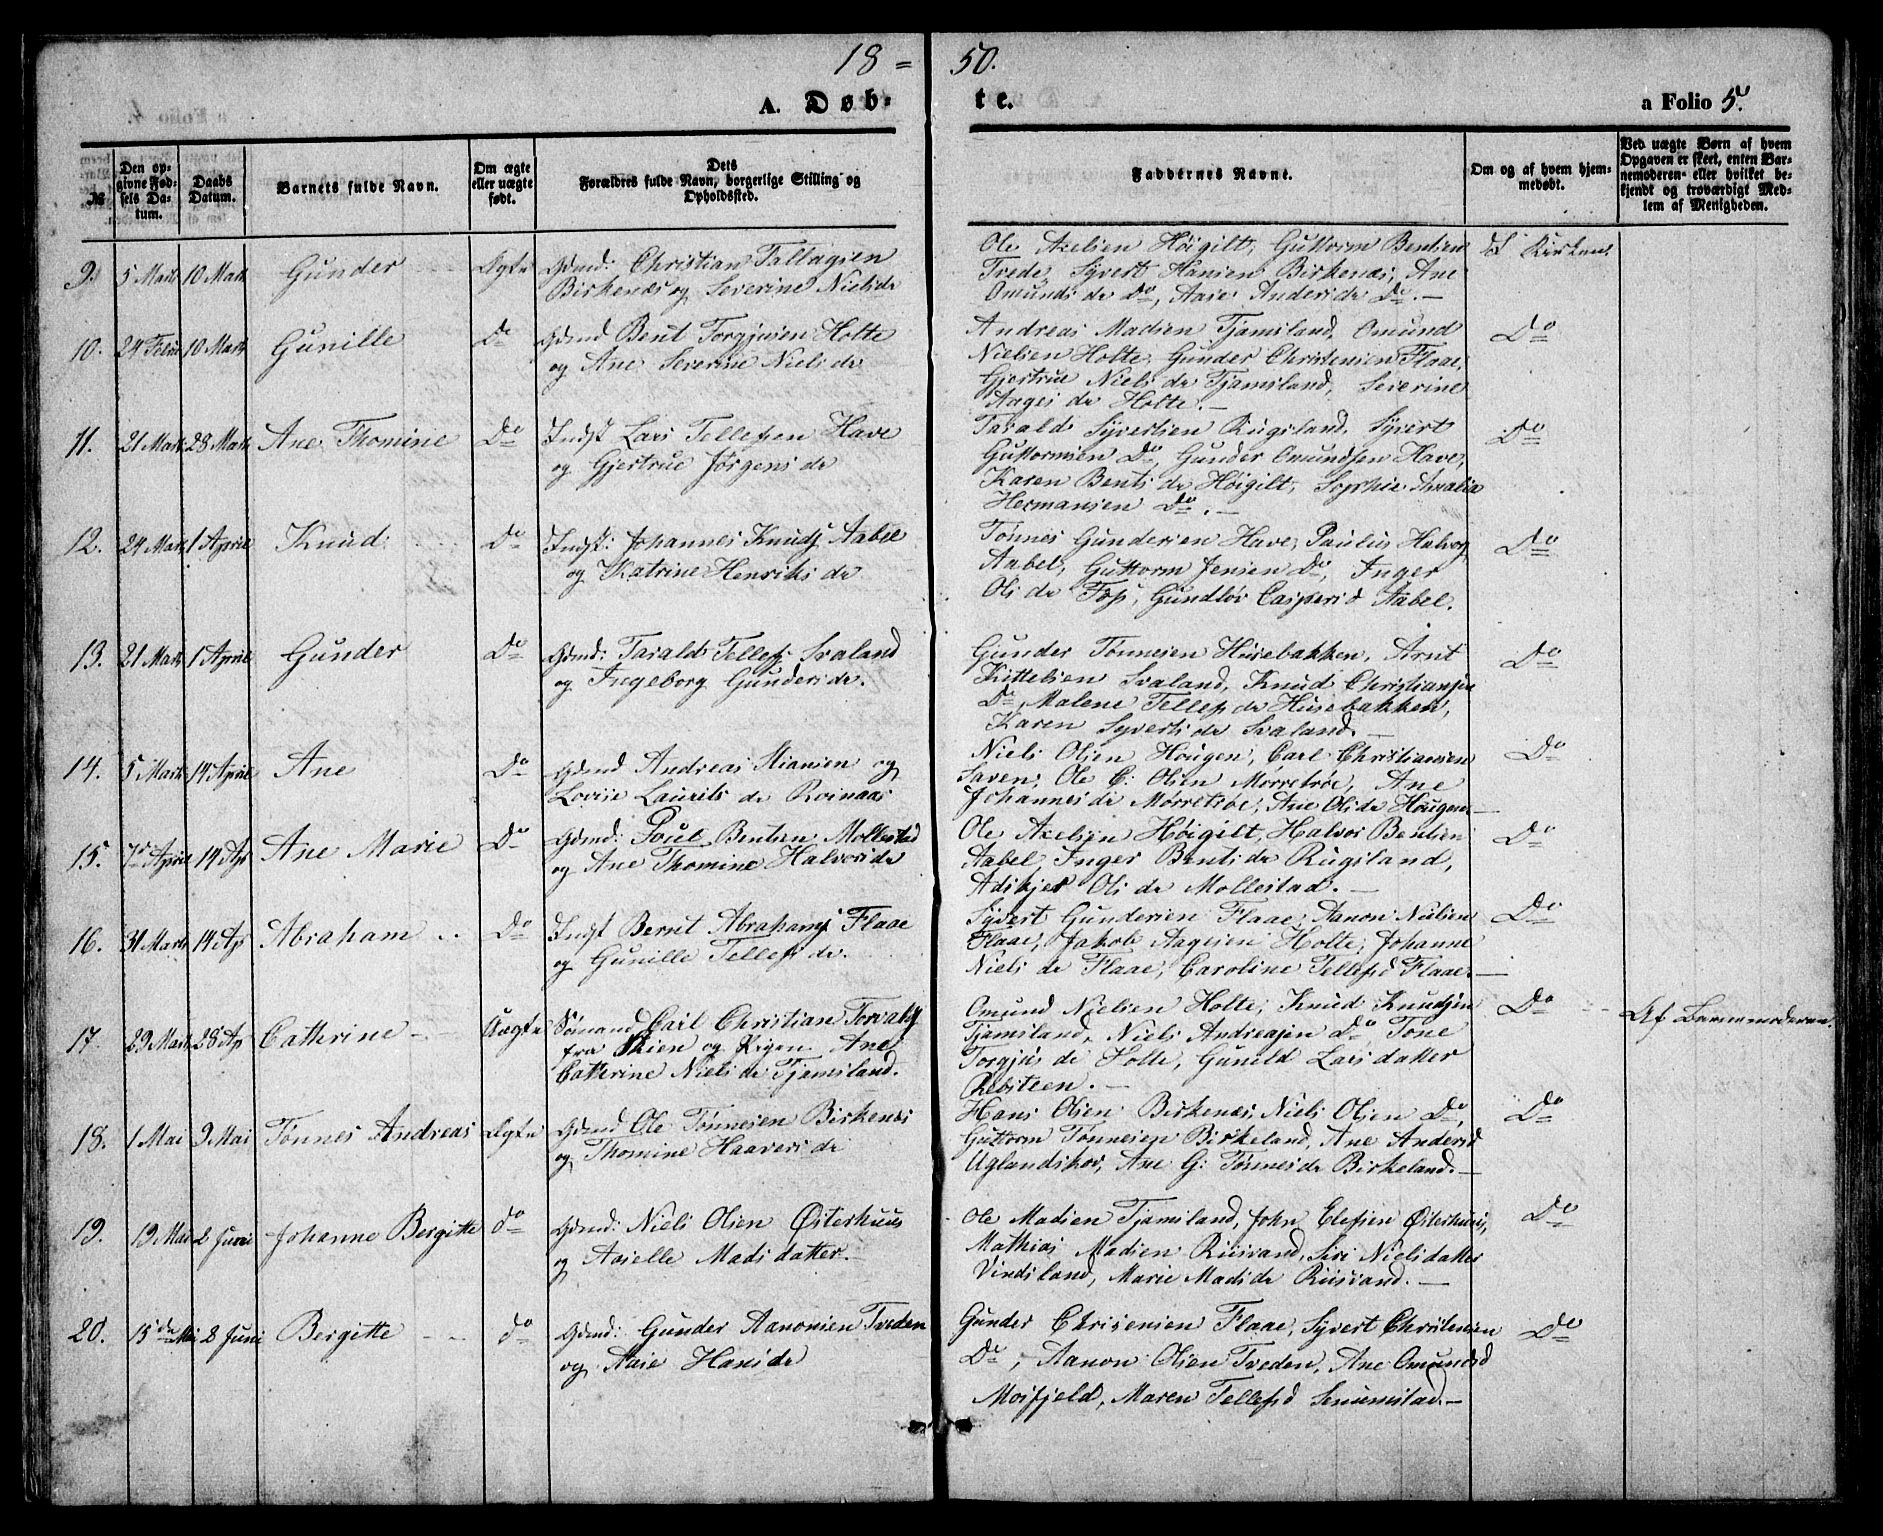 18 = 50.
A. Døb- te. a Folio 5.
№
Den op-
givne Fød-
sels Da-
tum.
Daabs
Datum.
Barnets fulde Navn.
Om ægte
eller uægte
født.
Dets
Forældres fulde Navn, borgerlige Stilling og
Opholdssted.
Faddernes Navne.
Om og af hvem hjem-
medøbt.
Ved uægte Børn af hvem
Opgaven er skeet, enten Bar-
nemoderen eller hvilket be-
kjendt og troværdigt Med-
lem af Menigheden.
9. 5 Marts 10 Marts Gunder Ægte Gdmd: Christian Tallagsen
Birkenæs og Severine Nielsdr
Ole Axelsen Høigilt, Guttorm Bentsen
Tvede, Syvert Hansen Birkenæs, Ane
Omundsdr Do, Aase Andersdr Do. —
i Kirken.
10. 24 Febr 10 Marts Gunille Do Gdmd Bent Torgjusen Holte
og Ane Severine Nielsdr
Andreas Madsen Tjamsland, Omund
Nielsen Holte, Gunder Christensen Flaae,
Gjertrue Nielsdr Tjamsland, Severine
Aagesdr Holte. —
Do
11. 21 Marts 28 Marts Ane Thomine Do Indst Lars Tellefsen Have
og Gjertrue Jørgensdr
Tarald Syvertsen Rugsland, Syvert
Guttormsen Do, Gunder Omundsen Have,
Karen Bentsdr Høigilt, Sophie Amalia
Hermansen Do. —
Do
12. 24 Marts 1 April Knud Do Indst: Johannes Knuds. Aabel
og Katrine Henriksdr
Tønnes Gundersen Have, Paulus Halvors.
Aabel, Guttorm Jensen Do, Inger
Olsdr Tos, Gundlov Caspersd Aabel.
Do
13. 21 Marts 1 April Gunder Do Gdmd: Tarald Tellefs. Svaland
og Ingeborg Gundersdr.
Gunder Tønnesen Husebakken, Arnt
Kittelsen Svaland, Knud Christiansen
Do, Malene Tellefsdr Husebakken,
Karen Syvertsdr Svaland. —
Do
14. 5 Marts 14 April Ane Do Gdmd Andreas Stiansen og
Lovise Lauritsdr Roinaas
Niels Olsen Hougen, Carl Christiansen
Saven, Ole C: Olsen Mørretrøe, Ane
Johannesdr Mørretrøe, Ane Olsdr Hougen —
Do
15. 7de April 14 Ap Ane Marie Do Gdmd: Poul Bentsen Mollestad
og Ane Thomine Halvorsdr
Ole Axelsen Høigilt, Halvor Bentsen
Aabel, Inger Bentsdr Rugsland,
Adskjer Olsdr Mollestad. —
Do
16. 31 Marts 14 Ap Abraham Do Indst Bernt Abrahams. Flaae
og Gunille Tellefsdr.
Syvert Gundersen Flaae, Aanon Nielsen
Flaae, Jakob Aagesen Holte, Johanne
Nielsdr Flaae, Caroline Tellefsd Flaae. —
Do
17. 29 Marts 28 Ap Cathrine Uægte Sømand Carl Christian
fra Skien og Pigen Ane
Catherine Nielsdr Tjamsland.
Omund Nielsen Holte, Knud Knudsen
Tjamsland, Niels Andreasen Do, Tone
Torgjusdr Holte, Gunild Larsdatter
Rebsteen. —
Do Af Barnemoderen.
18. 1 Mai 9 Mai Tønnes Andreas Ægte Gdmd Ole Tønnesen Birkenæs
og Thomine Haaversdr
Hans Olsen Birkenæs, Niels Olsen Do,
Guttorm Tønnesen Birkeland, Ane Andersd
Uglandskov, Ane G: Tønnesdr Birkeland. —
Do
19. 19 Mai 2 Juni Johanne Bergitte do Gdmd: Niels Olsen Østerhuus
og Aaselle Madsdatter.
Ole Madsen Tjamsland, John Elefsen Østerhuus,
Mathias Madsen Risvand, Siri Nielsdatter
Vindsland, Marie Madsdr Risvand. —
Do
20. 15de Mai 2 Juni Bergitte do Gdmd: Gunder Aanonsen Tveden
og Aase Hansdr
Gunder Chrisensen Flaae, Syvert Christensen
Do, Aanon Olsen Tveden, Ane Omundsd
Mosfjeld, Maren Tellefsd Senumstad. —
Do